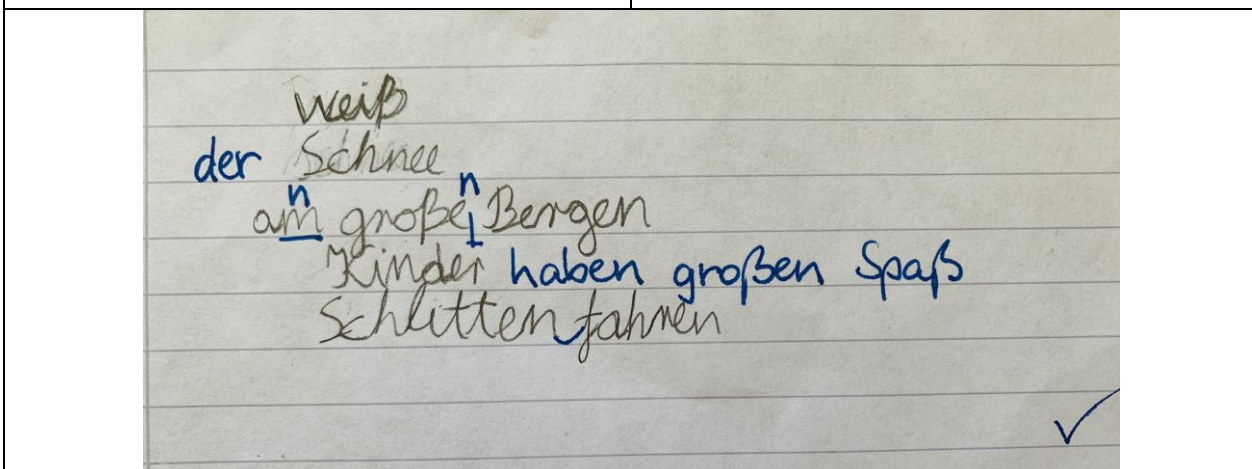 weiß
der Schnee
n n
am große Bergen
Kinder haben großen Spaß
Schlitten fahren